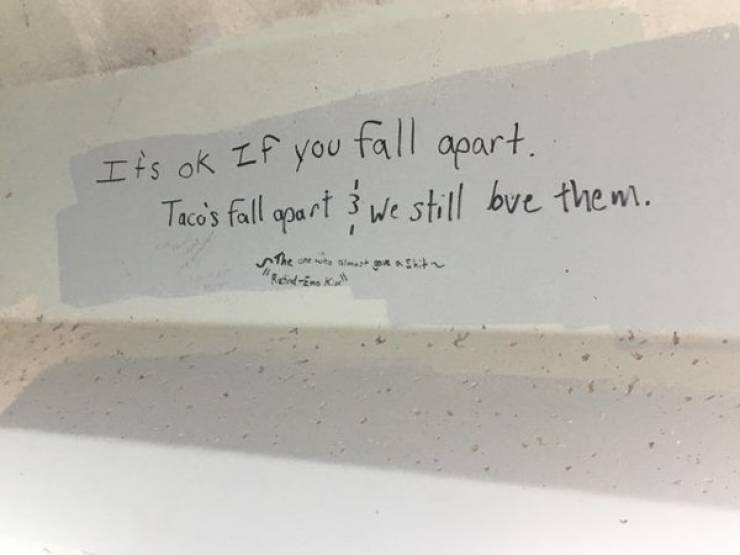 It's ok If you fall apart.
Taco's fall apart & we still love them.
~The one who almost gave a shit~
"Retired-Emo Kid"